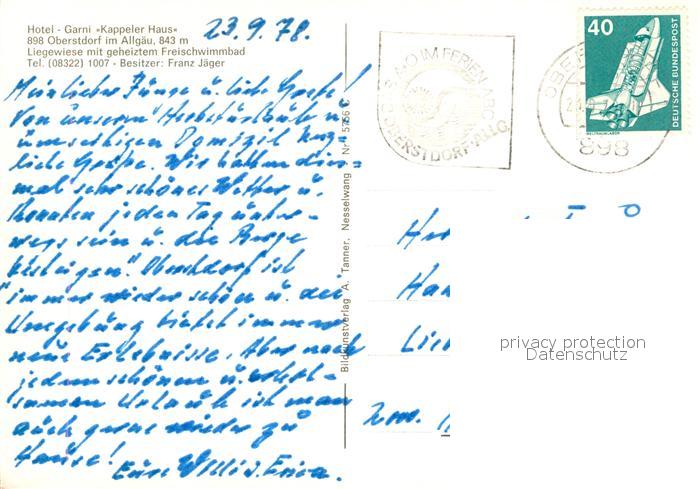 Hotel - Garni »Kappeler Haus«
898 Oberstdorf im Allgäu, 843 m
Liegewiese mit geheiztem Freischwimmbad
Tel. (08322) 1007 - Besitzer: Franz Jäger
23.9.78.
Mein lieber Junge u. liebe Grete!
Von unserm Herbsturlaub u.
unserem Domizil herz-
liche Grüße. Wir hatten dies-
mal sehr schönes Wetter u.
konnten jeden Tag unter-
wegs sein u. die Berge
besteigen". Oberstdorf ist
immer wieder schön u. die
Umgebung bietet immer
neue Erlebnisse. Aber nach
jedem schönen u. erhol-
samen Urlaub ist man
auch gerne wieder zu
Hause!
Eure Willi u. Erica.
Bildkunstverlag A. Tanner, Nesselwang Nr.
IM FERIEN
OBERSTDORF/ALLG.
40
DEUTSCHE BUNDESPOST
WELTRAUMLABOR
OBER
898
privacy protection
Datenschutz